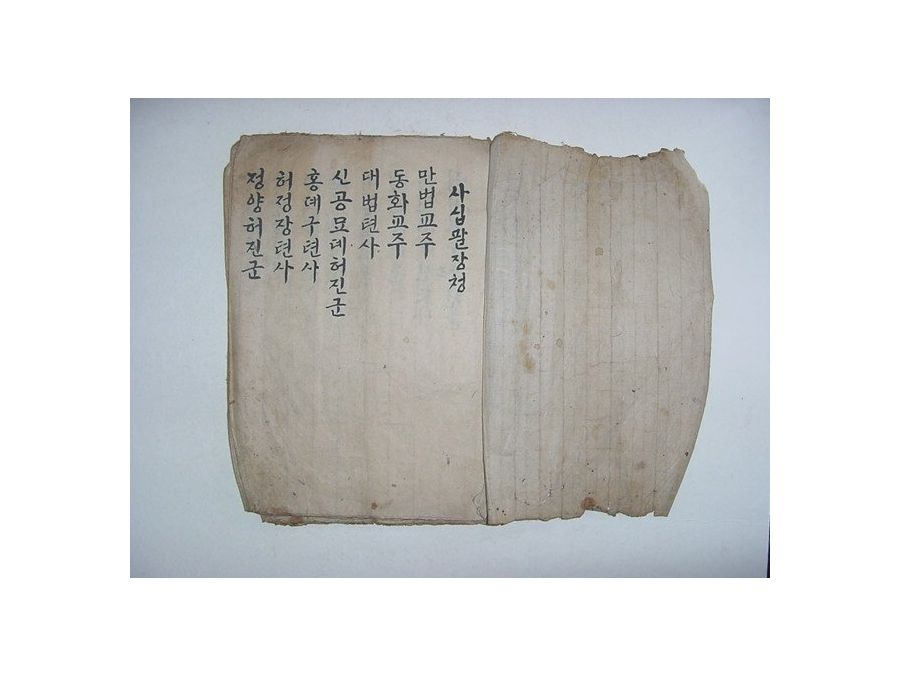 사십팔장청
만법교주
동화교주
대법텬사
신공묘데허진군
홍데구텬사
허정장텬사
정양허진군